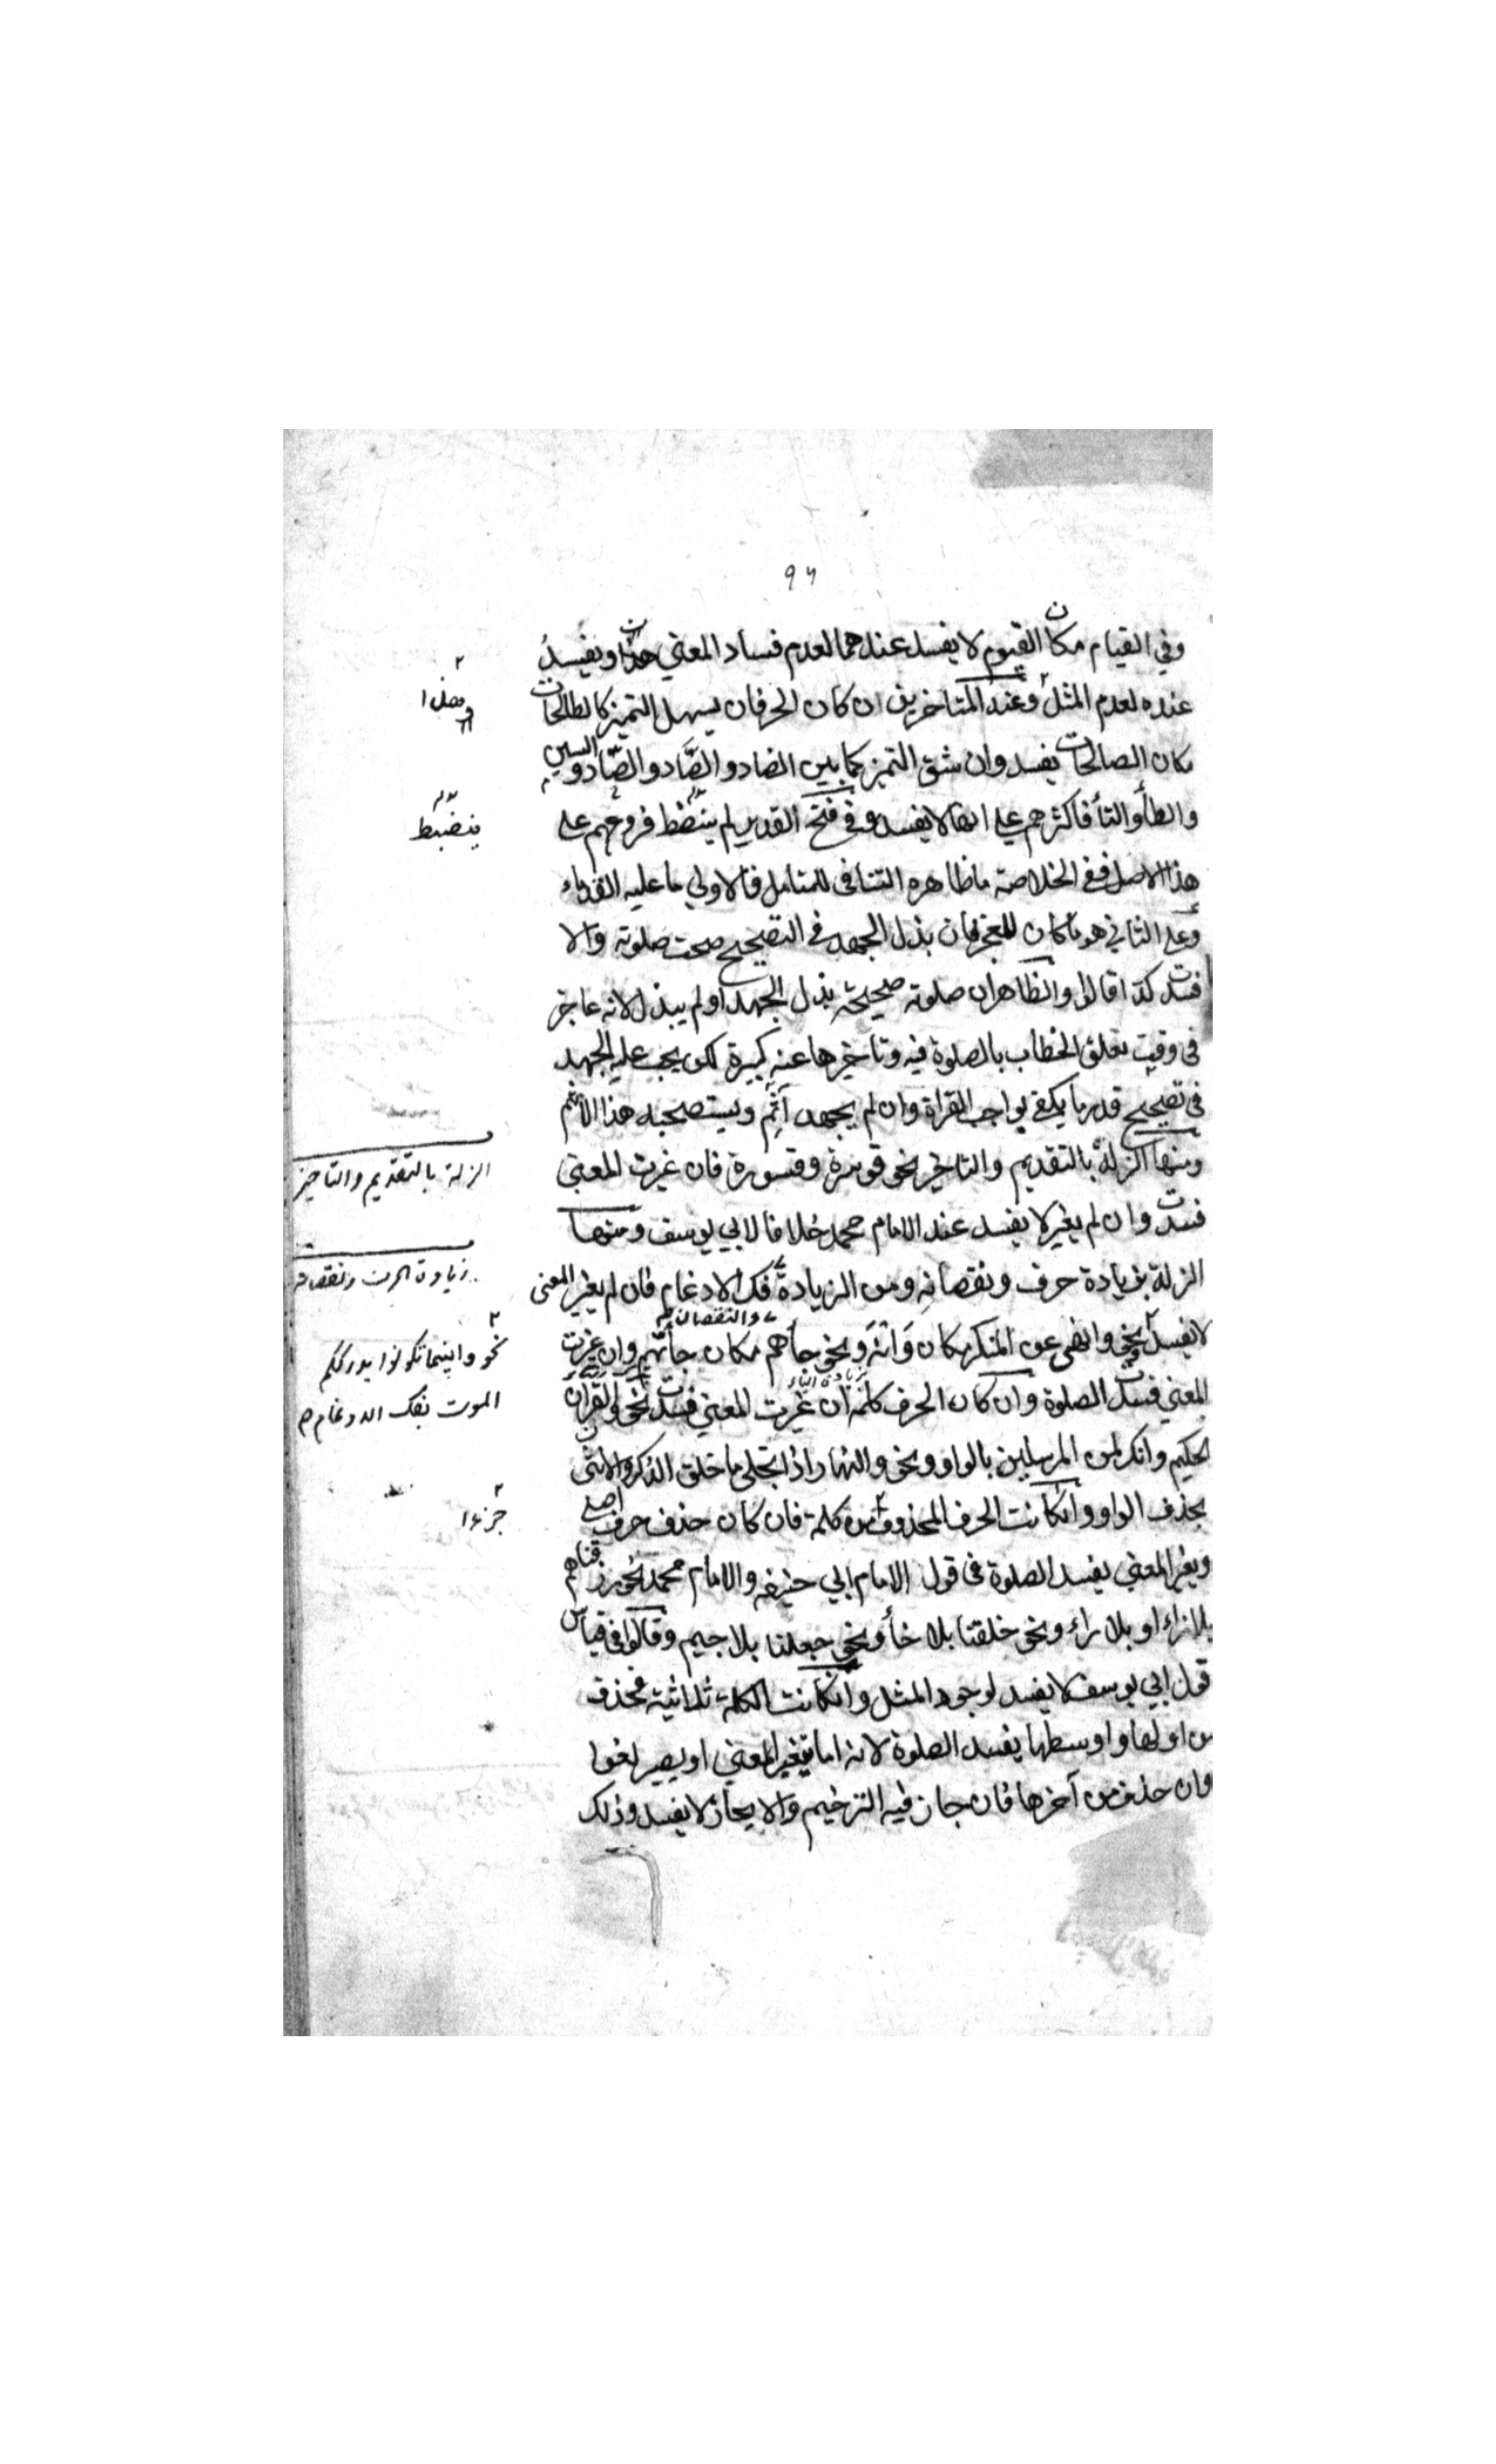 ٩٦
وفي القيام مكان القيوم لا يفسد عندهما لعدم فساد المعني هنا ويفسد
عنده لعدم المثل وعند المتاخرين ان كان الحرفان يسهل التميز كالطالحات
مكان الصالحات يفسد وان شق التميز كما بين الضاد والظاد والصاد والسين
والطأ والتأ فاكثرهم علي انها لا يفسد وفي فتح القدير لم ينضط فروعهم علي
هذا الاصل ففي الخلاصة ما ظاهره التنافى للمتامل فالاولي ما عليه القدماء
وعلي الثاني هو ما كان للعجز فان بذل الجهد في التصحيح صحت صلوته والا
فسدت كذا قالوا والظاهران صلوته صحيحة بذل الجهد او لم يبذل لانه عاجز
في وقت تعلق الخطاب بالصلوة فيه وتاخيرها عنه كبيرة لكن يجب عليه الجهد
في تصحيح قدر ما يكفي لواجب القراة وان لم يجهد آثم ويستصحبه هذا الاثم
ومنها الزلة بالتقديم والتاخير نحو قوسرة وقسورة فان غيرت المعني
فسدت وان لم يغير لا يفسد عند الامام محمد خلافا لابي يوسف ومنها
الزلة بزيادة حرف ونقصانه ومن الزيادة فك الادغام فان لم يغير المعنى
والنقصان
لا يفسد نحو وانهى عن المنكر مكان وَانْهَ ونحو جأهم مكان جأتهم وان غيرت
بزيادة الياء
المعني فسدت الصلوة وان كان الحرف كلمة ان غيرت المعني فسدت نحو والقرآن
الحكيم وانك لمن المرسلين بالواو ونحو والنهار اذا تجلى ما خلق الذكر والانثى
بحذف الواو وانكانت الحرف المحذوف من كلمة فان كان حذف حرف اصلي
ويغير المعني يفسد الصلوة في قول الامام ابي حنيفه والامام محمد نحو رزقناهم
بلا زاء او بلا راء ونحو خلقنا بلا خأ ونحو جعلنا بلا جيم وقالوا في قياس
قول ابي يوسف لا يفسد لوجود المثل وانكانت الكلمة ثلاثية فحذف
من اولها او اوسطها يفسد الصلوة لانه اما يتغير المعني او يصير لغوا
وان حذف من آخرها فان جاز فيه الترخيم والايجاز لا يفسد وذلك
ينضبط
الزلة بالتقديم والتاخير
زيادة الحرف ونقصانه
نحو واينما تكونوا يدرككم
الموت بفك الادغام
جزءا